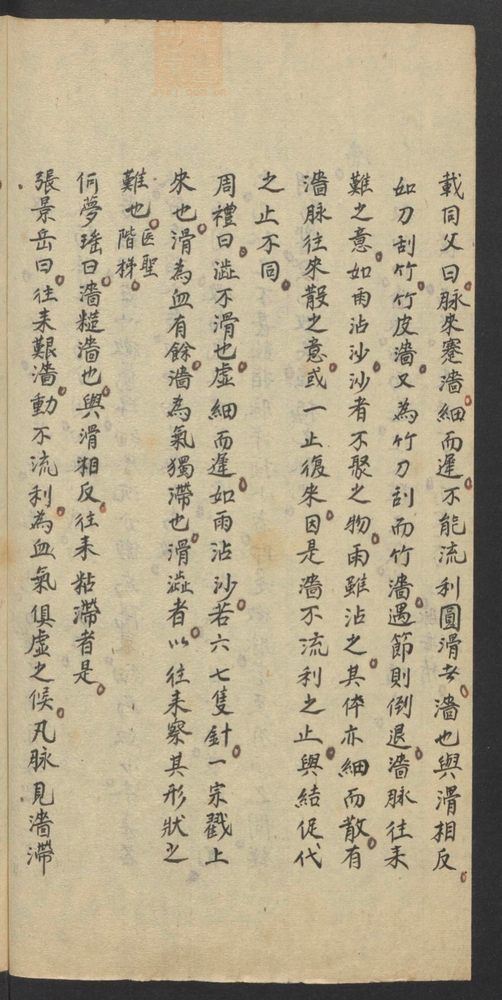 載同父曰脉來蹇濇細而遲不能流利圓滑者濇也與滑相反
如刀刮竹竹皮濇又為竹刀刮而竹濇遇節則倒退濇脉往来
難之意如雨沾沙沙者不聚之物雨雖沾之其体亦細而散有
濇脉往來散之意或一止復來因是濇不流利之止與結促代
之止不同
周禮曰澁不滑也虛細而遲如雨沾沙若六七隻針一宗戳上
來也滑為血有餘濇為氣獨滯也滑澁者以往来察其形狀之
難也医聖階梯
何夢瑤曰濇糙濇也與滑相反往来粘滯者是
張景岳曰往来艱濇動不流利為血氣俱虛之候凡脉見濇滯